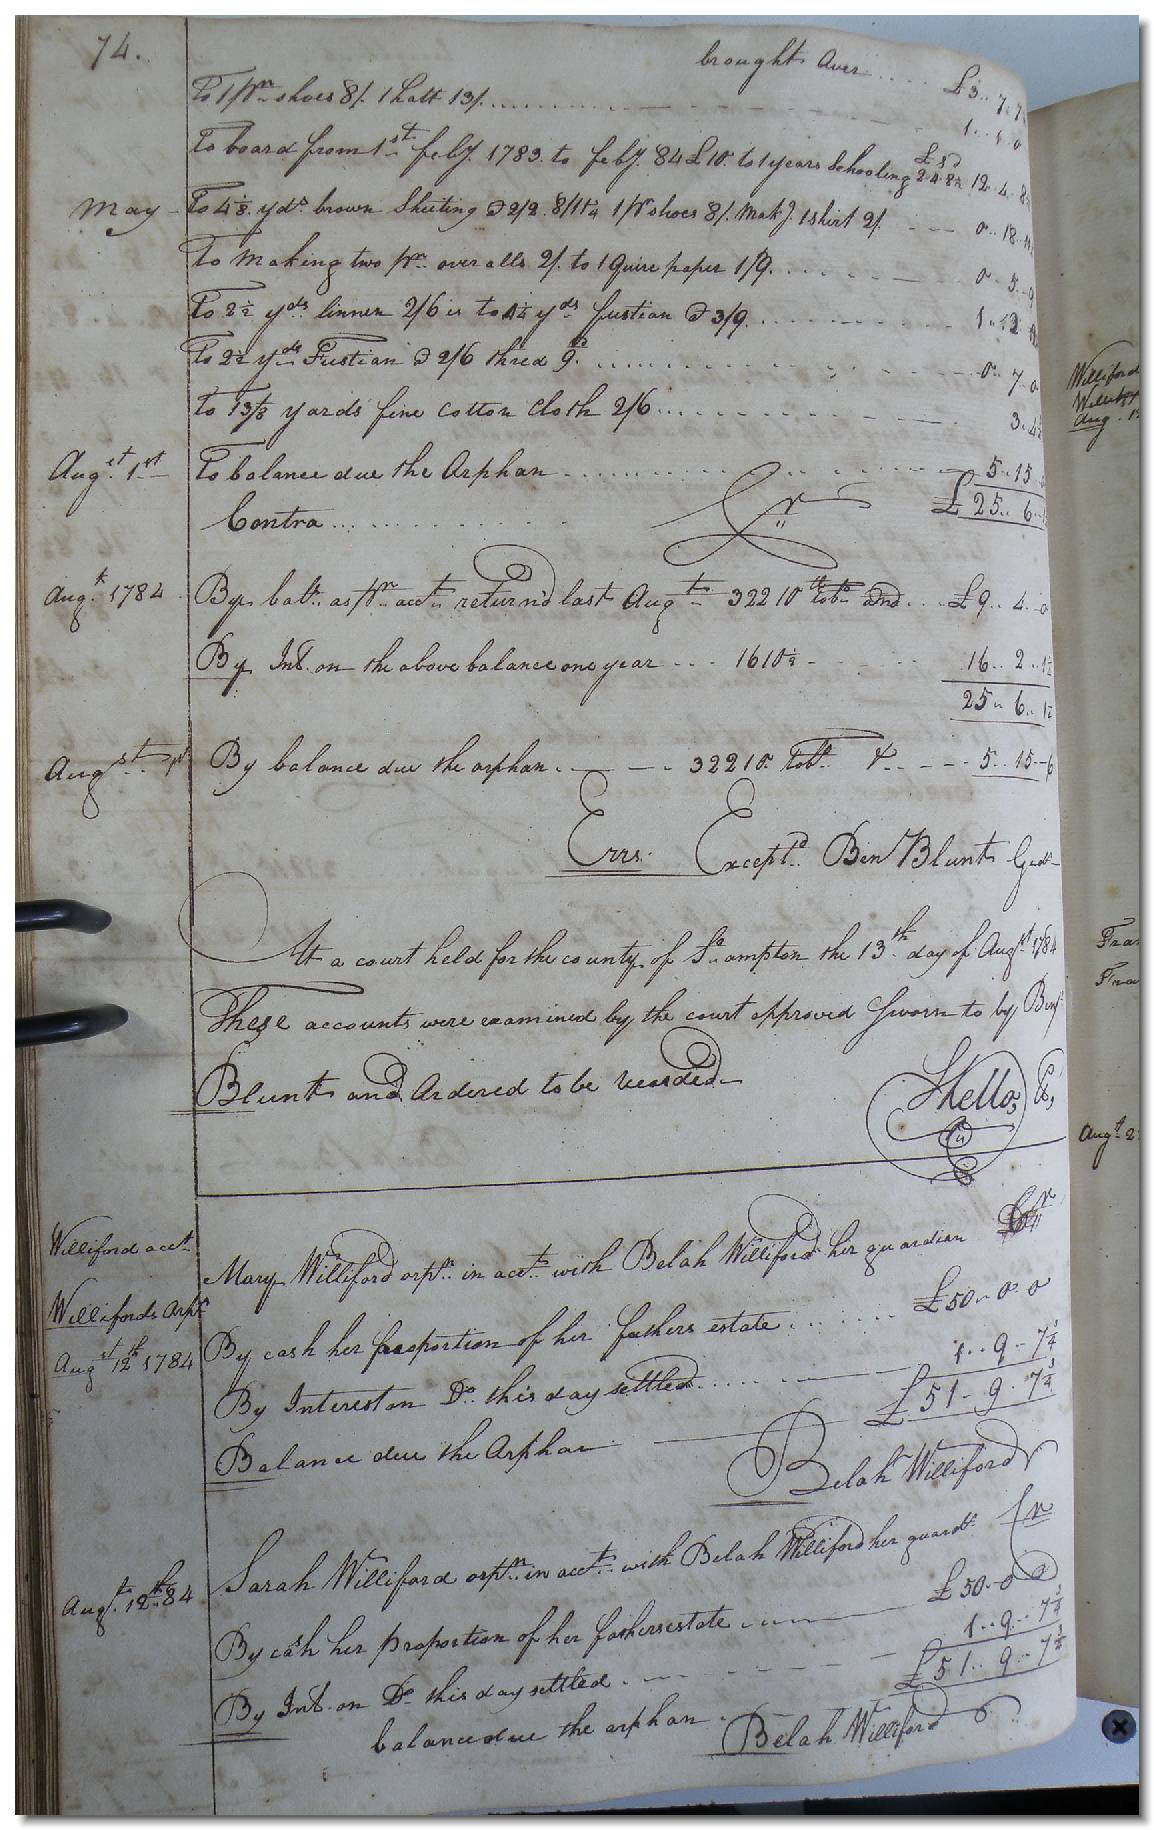 74.
brought Over .... £3.. 7. 7
To 1 pr shoes 8/. 1 hatt 13/. ........ 1.. 1. 0
To board from 1st feby. 1783. to feby. 84 £10. to 1 years Schooling 2.4.8½ 12.. 4.. 8
May To 4⅛ yds brown Sheeting @ 2/2. 8/11¼ 1 pr shoes 8/. Makg. 1 shirt 2/. --- 0.. 18..11
To Making two pr. overalls 2/. to 1 Quire paper 1/9. .... 0.. 3..9
To 2½ yds linnen 2/6 is to 4¼ yds fustian @ 3/9. .... 1..
To 2½ yds Fustian @ 2/6 thred 9d. .... 0.. 7.. 0
To 1 3/8 yards fine cotton cloth 2/6 ... 3..4½
Augst. 1st To balance due the Orphan ...... 5..15
£25.. 6..
Contra ........ Cr
Augt. 1784 By ball. as pr. acct. return'd last Augt. 32210 tob. and .. £9.. 4..0
By Int. on the above balance one year ... 1610½ - 16.. 2..1½
25.. 6.. 1½
Augst. 1st By balance due the orphan. --- 32210 tob. & --- 5.. 15..6
Errs. Exceptd. Ben Blunt Gad
At a court held for the county of So. ampton the 13th day of Augst 1784
These accounts were examined by the court approved Sworn to by Benj
Blunt and Ordered to be recorded
Williford acct.
Mary Williford orpn. in acct. with Belah Williford her guardian Cr
Willifords Orpn
Augst 12th 1784 By cash her proportion of her fathers estate ..... £50.. 0.. 0
By Interest on Do. this day settled .... 1.. 9.. 7¼
Balance due the Orphan £51.. 9.. 7¼
Belah Williford
Augt. 12th 84 Sarah Williford orpn. in acct. with Belah Williford her guardn. Cr
By cash her proportion of her fathers estate £50..0..0
By Int. on Do. this day settled. 1.. 9.. 7¼
balance due the orphan £51.. 9.. 7¼
Belah Williford
Williford
Augt. 2